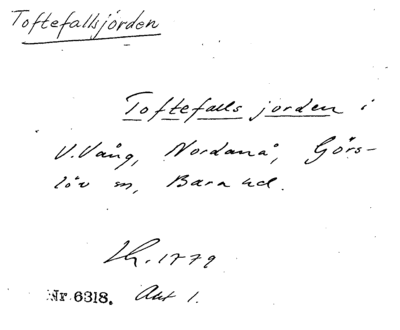 Toftefallsjorden
Toftefalls jorden i
V. Vång, Nordanå, Görs-
löv sn, Bara hd.
Lh. 1779
Nr 6318. Akt 1.